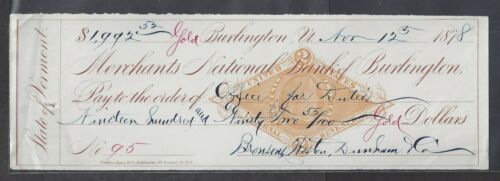 $1,992 52 Gold Burlington, Vt Nov 12th 1878
Merchants National Bank of Burlington,
Pay to the order of Office for Duties
Nineteen Hundred and Ninety Two 52/100 Gold Dollars
No 95 Bronsons, Weston, Dunham & Co
State of Vermont.